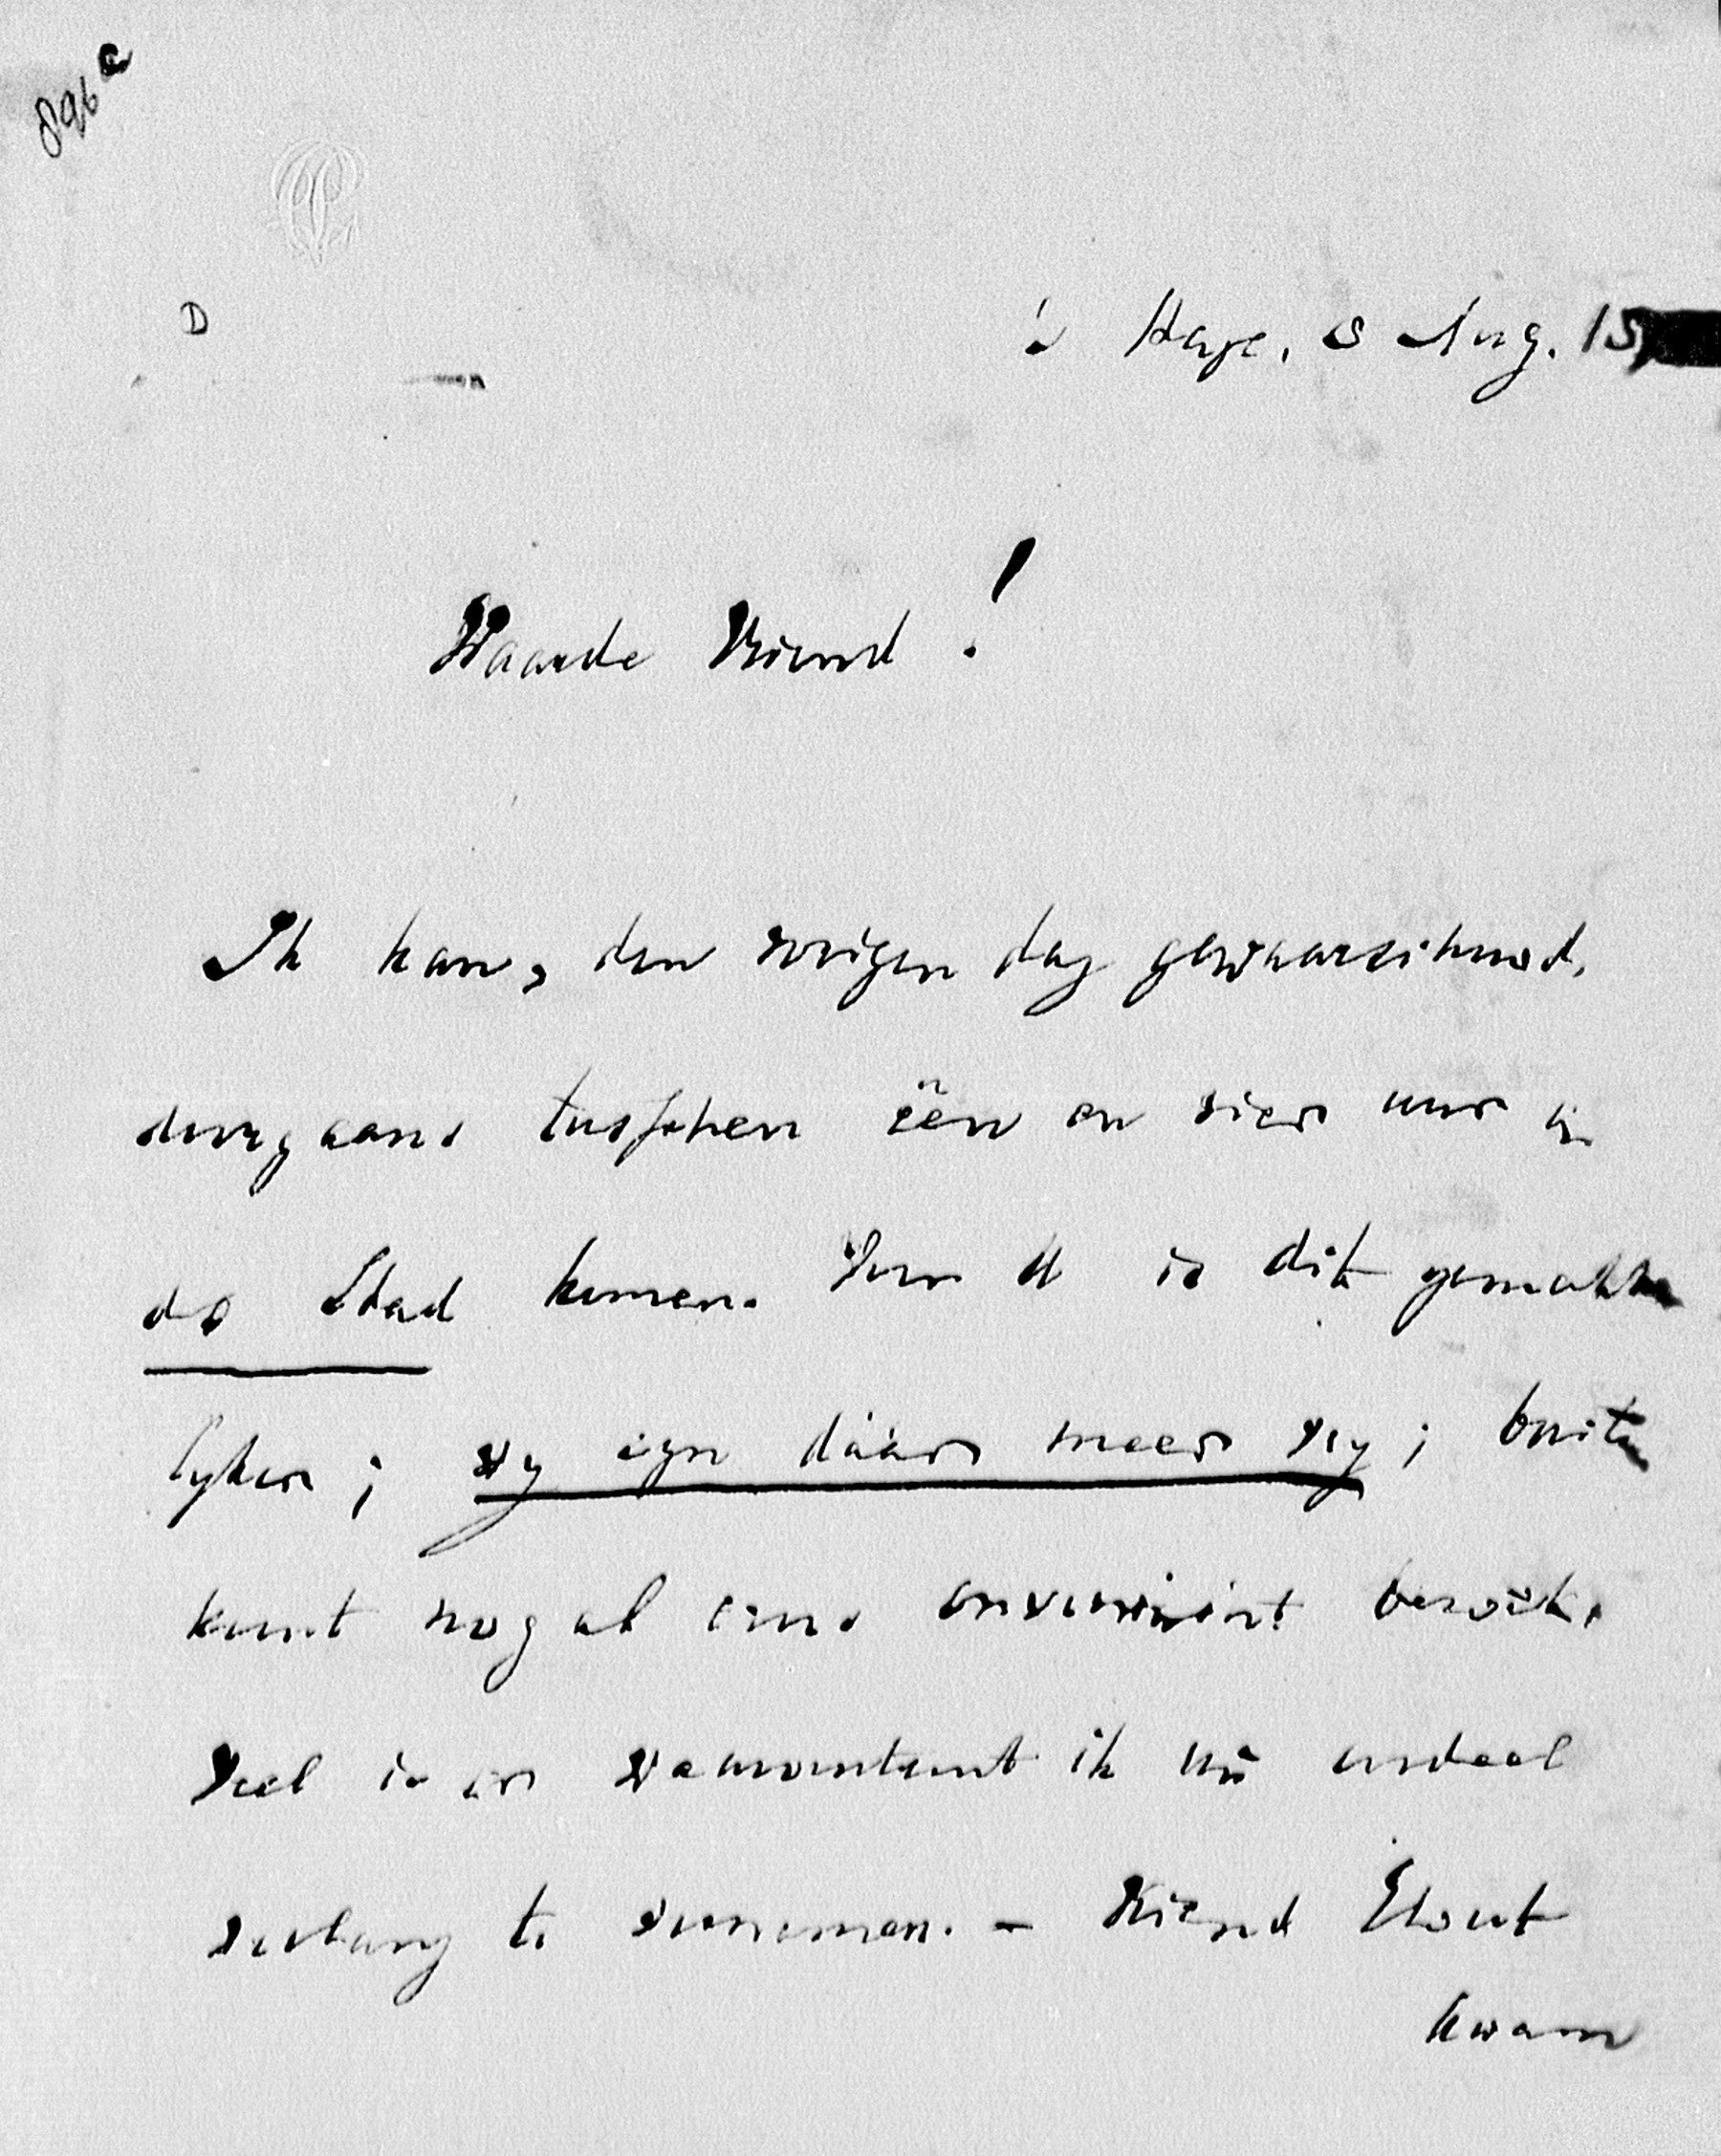 896 a
D
's Hage, 8 Aug. 18
Waarde Vriend!
Ik kan, den vorigen dag gewaarschuwd,
doorgaans tusschen één en vier uur in
de Stad komen. Voor U is dit gemakke
lyker; wy zyn dáár meer vry; buiten
komt nog al eens onverwacht bezoek.
Veel is er waaromtrent ik uw oordeel
verlang te vernemen. - Vriend Elout
kwam